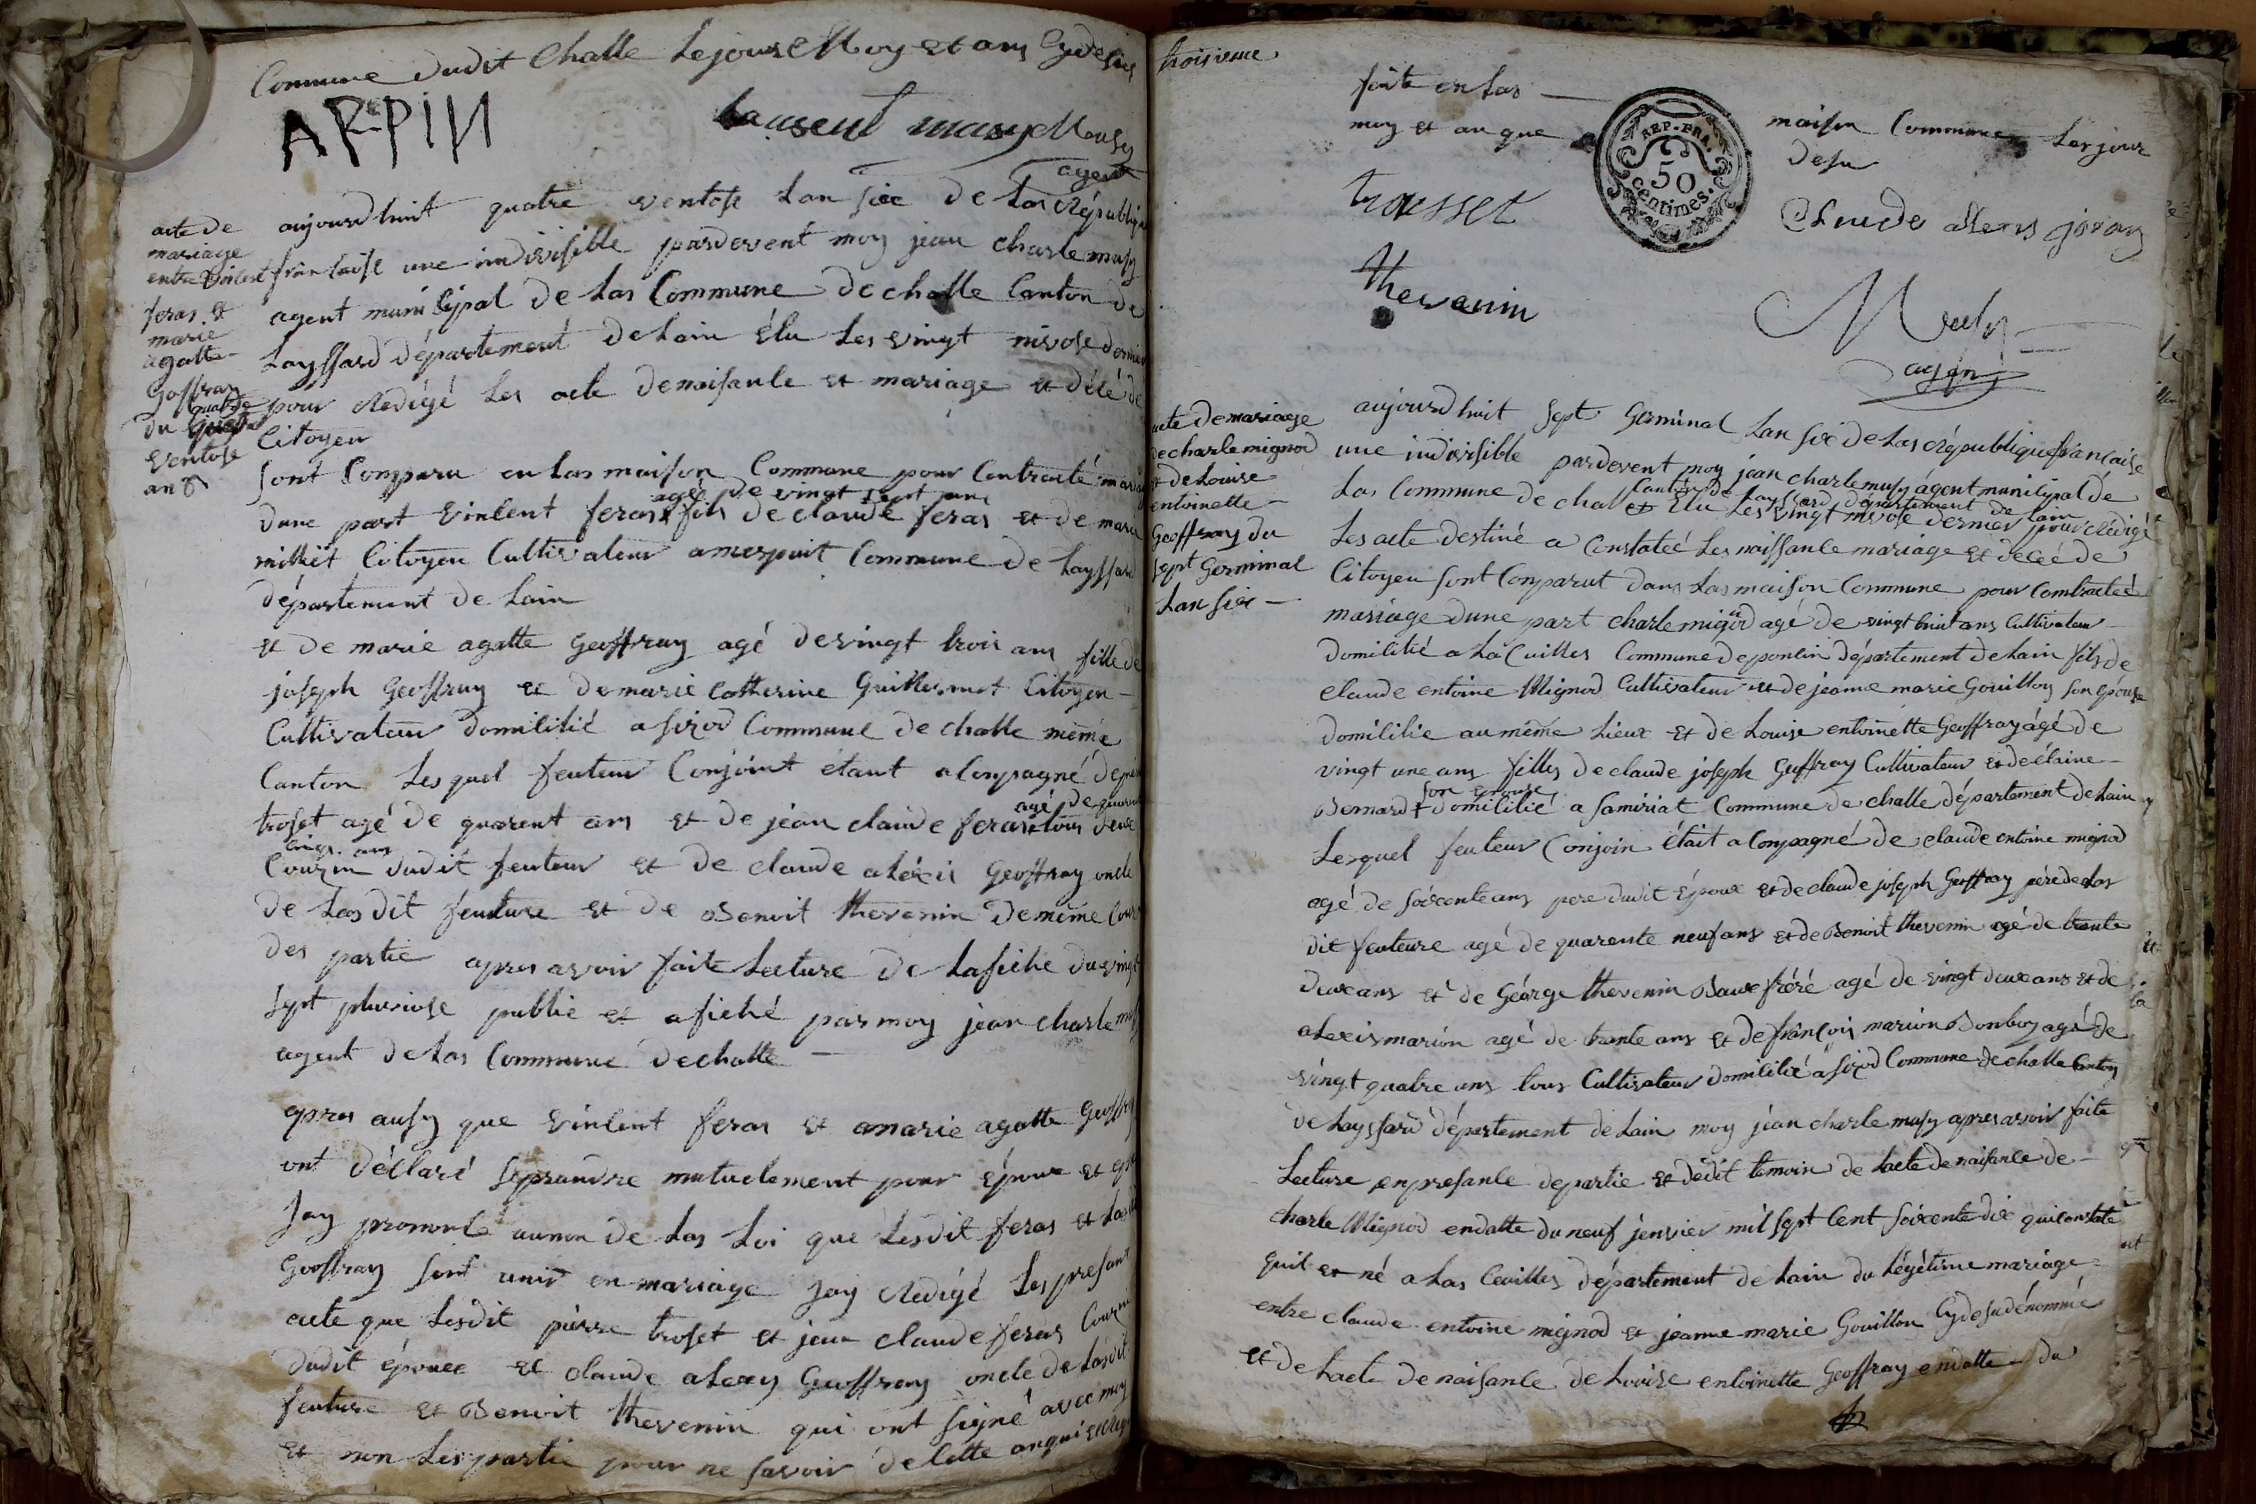 Commune dudit Challe Lejour Moy et ans Cydesus
ARPIN
musy
agent
acte de
mariage
entre vinlent
feras et
marie
agatte
Goffray
du quatre
ventose
an 6
aujourdhuit quatre ventose Lan six De Las Républiq
françaisse une indivisible pardevent moy jean charle musy
agent munilipal De Las Commune De challe Canton De
Layssard département De Lain élu Les vingt nivose dernier
pour Redigé Les acte denaisanle et mariage et délé de
Citoyen
sont Comparu en Las maison Commune pour Contracté mariage
dune part vinlent feras fils de claude feras et de marie
agé de vingt sept ans
millièt Citoyen Cultivateur Commune De Layssard
département de Lain
et De marie agatte Geoffray agé devingt trois ans fille de
joseph Geoffray et Demarie Catherine Guillermet Citoyen
Cultivateur Domililié a sizod Commune de challe même
Canton Lesquel feuteur Conjoint étant aConpagné De pierre
troset agé De quarent ans et de jean claude feras tous deux
agé De quarent
cinq ans
Couzin dudit feuteur et de claude alexis Geoffray oncle
De Lasdit feuture et de Benoit thevenin De même
Des partie apres avoir faite Lecture De Lafiche du vingt
sept pluviose publie et afiché par moy jean charle musy
agent de Las Commune Dechalle
apres ausy que vinlent feras et marie agatte Geoffray
ont Déclaré seprandre mutuelement pour époux et
Jay prononcé aunom de Las Loi que Lesdit feras et Lasdit
Geoffray sont unit en mariage Jay Redigé Les presant
acte que Lesdit pierre troset et jean claude feras Couzin
Dudit épouee et claude alexy Geoffray oncle de Lasdit
feuture et Benoit thevenin qui ont signé avec moy
et non Les partie pour ne savoir de
troisieme
faite en Las maison Commune Les jour
moy et an que desu
REP. FRA.
50
centimes.
trosset
Claude alexis
thevenin
Musy
agent
acte De mariage
de charle mignod
et de Louise
entoinette
Geoffray du
sept Germinal
Lan six
aujourdhuit sept Germinal Lan six de Las République française
une indivisible pardevent moy jean charle musy agent munilipal de
Las Commune de challe Canton de Layssard département de Lain
et élu Les vingt nivose dernier pour Redigé
Les acte destiné a Constateé Les naissanle mariage et délé de
Citoyen sont Comparut dans Las maison Commune pour Contracteé
mariage dune part charle mignod agé de vingt huit ans Cultivateur
domililié a La Cuilles Commune deponlin département de Lain fils de
claude entoine Mignod Cultivateur et de jeanne marie Gouillon son épouse
domililie au même Lieux et de Louise entoinette Geoffray âgé de
vingt une ans filles de claude joseph Geffray Cultivateur et de
Bernard son epouse domililié a samiriat Commune de challe département de Lain
Lesquel feuteur Conjoin étáit aConpagné de claude entoine mignod
agé de soixente ans pere dudit époux et de claude joseph Geoffray pére de Las
dit feuteure agé de quarente neuf ans et de Benoit thevenin agé de trente
deuxe ans et de Géorge thevenin Bauxfréré agé de vingt deuxe ans et de
alexis marion agé de trante ans et de françois marion Bonboy agé de
vingt quatre ans tous Cultivateur domililié a sizod Commune de challe Canton
de Layssard département de Lain moy jean charle musy apres avoir faite
Lecture enpresanle departie et dedit temoin de Lacte de naisanle de
charle Mignod endatte du neuf jenvier mil sept Cent soixente dix qui constate
quil et né a Las Ceuilles département de Lain du Légétime mariage
entre claude entoine mignod et jeanne marie Gouillon Cydesudénommé
et de Lacte de naisanle de Louise entoinette Geoffray endatte du